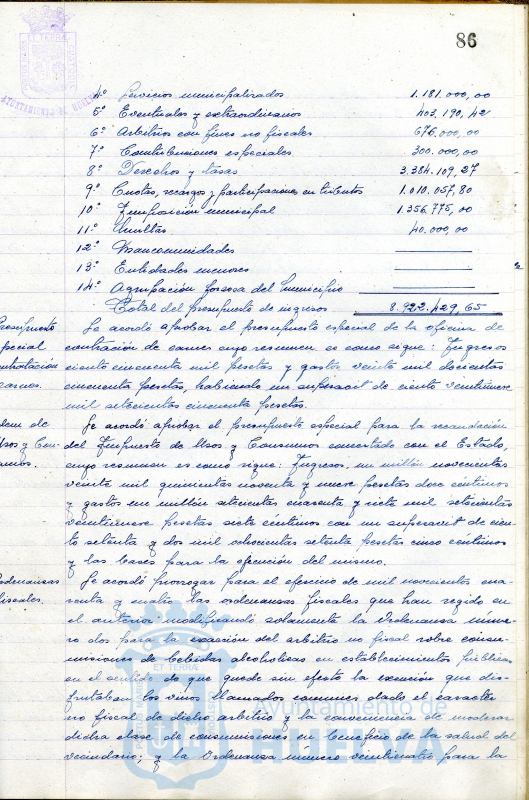 86
4º Servicios municipalizados 1.181.000,00
5º Eventuales y extraordinarios 403.190,42
6º Arbitrios con fines no fiscales 676.000,00
7º Contribuciones especiales 300.000,00
8º Derechos y tasas 3.384.109,27
9º Cuotas, recargos y participaciones en tributos 1.010.057,80
10º Imposición municipal 1.356.775,00
11º Multas 40.000,00
12º Mancomunidades
13º Entidades menores
14º Agrupación forzosa del Municipio
Total del presupuesto de ingresos 8.922.429,65
Presupuesto Se acordó aprobar el presupuesto especial de la oficina de
special contratación de carnes cuyo resumen es como sigue: Ingresos
ontratación ciento cincuenta mil pesetas y gastos veinte mil doscientas
carnes. cincuenta pesetas, habiendo un superavit de ciento veintinueve
mil setecientas cincuenta pesetas.
dem de Se acordó aprobar el presupuesto especial para la recaudación
Usos y Con- del Impuesto de Usos y Consumos concertado con el Estado,
umos. cuyo resumen es como sigue: Ingresos, un millón novecientas
veinte mil quinientas noventa y nueve pesetas doce céntimos
y gastos un millón setecientas cuarenta y siete mil setecientas
veintinueve pesetas siete céntimos con un superavit de cien-
to setenta y dos mil ochocientas setenta pesetas cinco céntimos
y las bases para la ejecución del mismo.
Ordenanzas Se acordó prorrogar para el ejercicio de mil novecientos cua-
fiscales. renta y cuatro las ordenanzas fiscales que han regido en
el anterior modificando solamente la Ordenanza núme-
ro dos para la exacción del arbitrio no fiscal sobre consu-
misiones de bebidas alcoholicas en establecimientos públicos
en el sentido de que quede sin efecto la exención que dis-
frutaban los vinos llamados comunes dado el caracter
no fiscal de dicho arbitrio y la conveniencia de moderar
dicha clase de consumisiones en beneficio de la salud del
vecindario; y la Ordenanza número veinticuatro para la
Ayuntamiento de
HUELVA